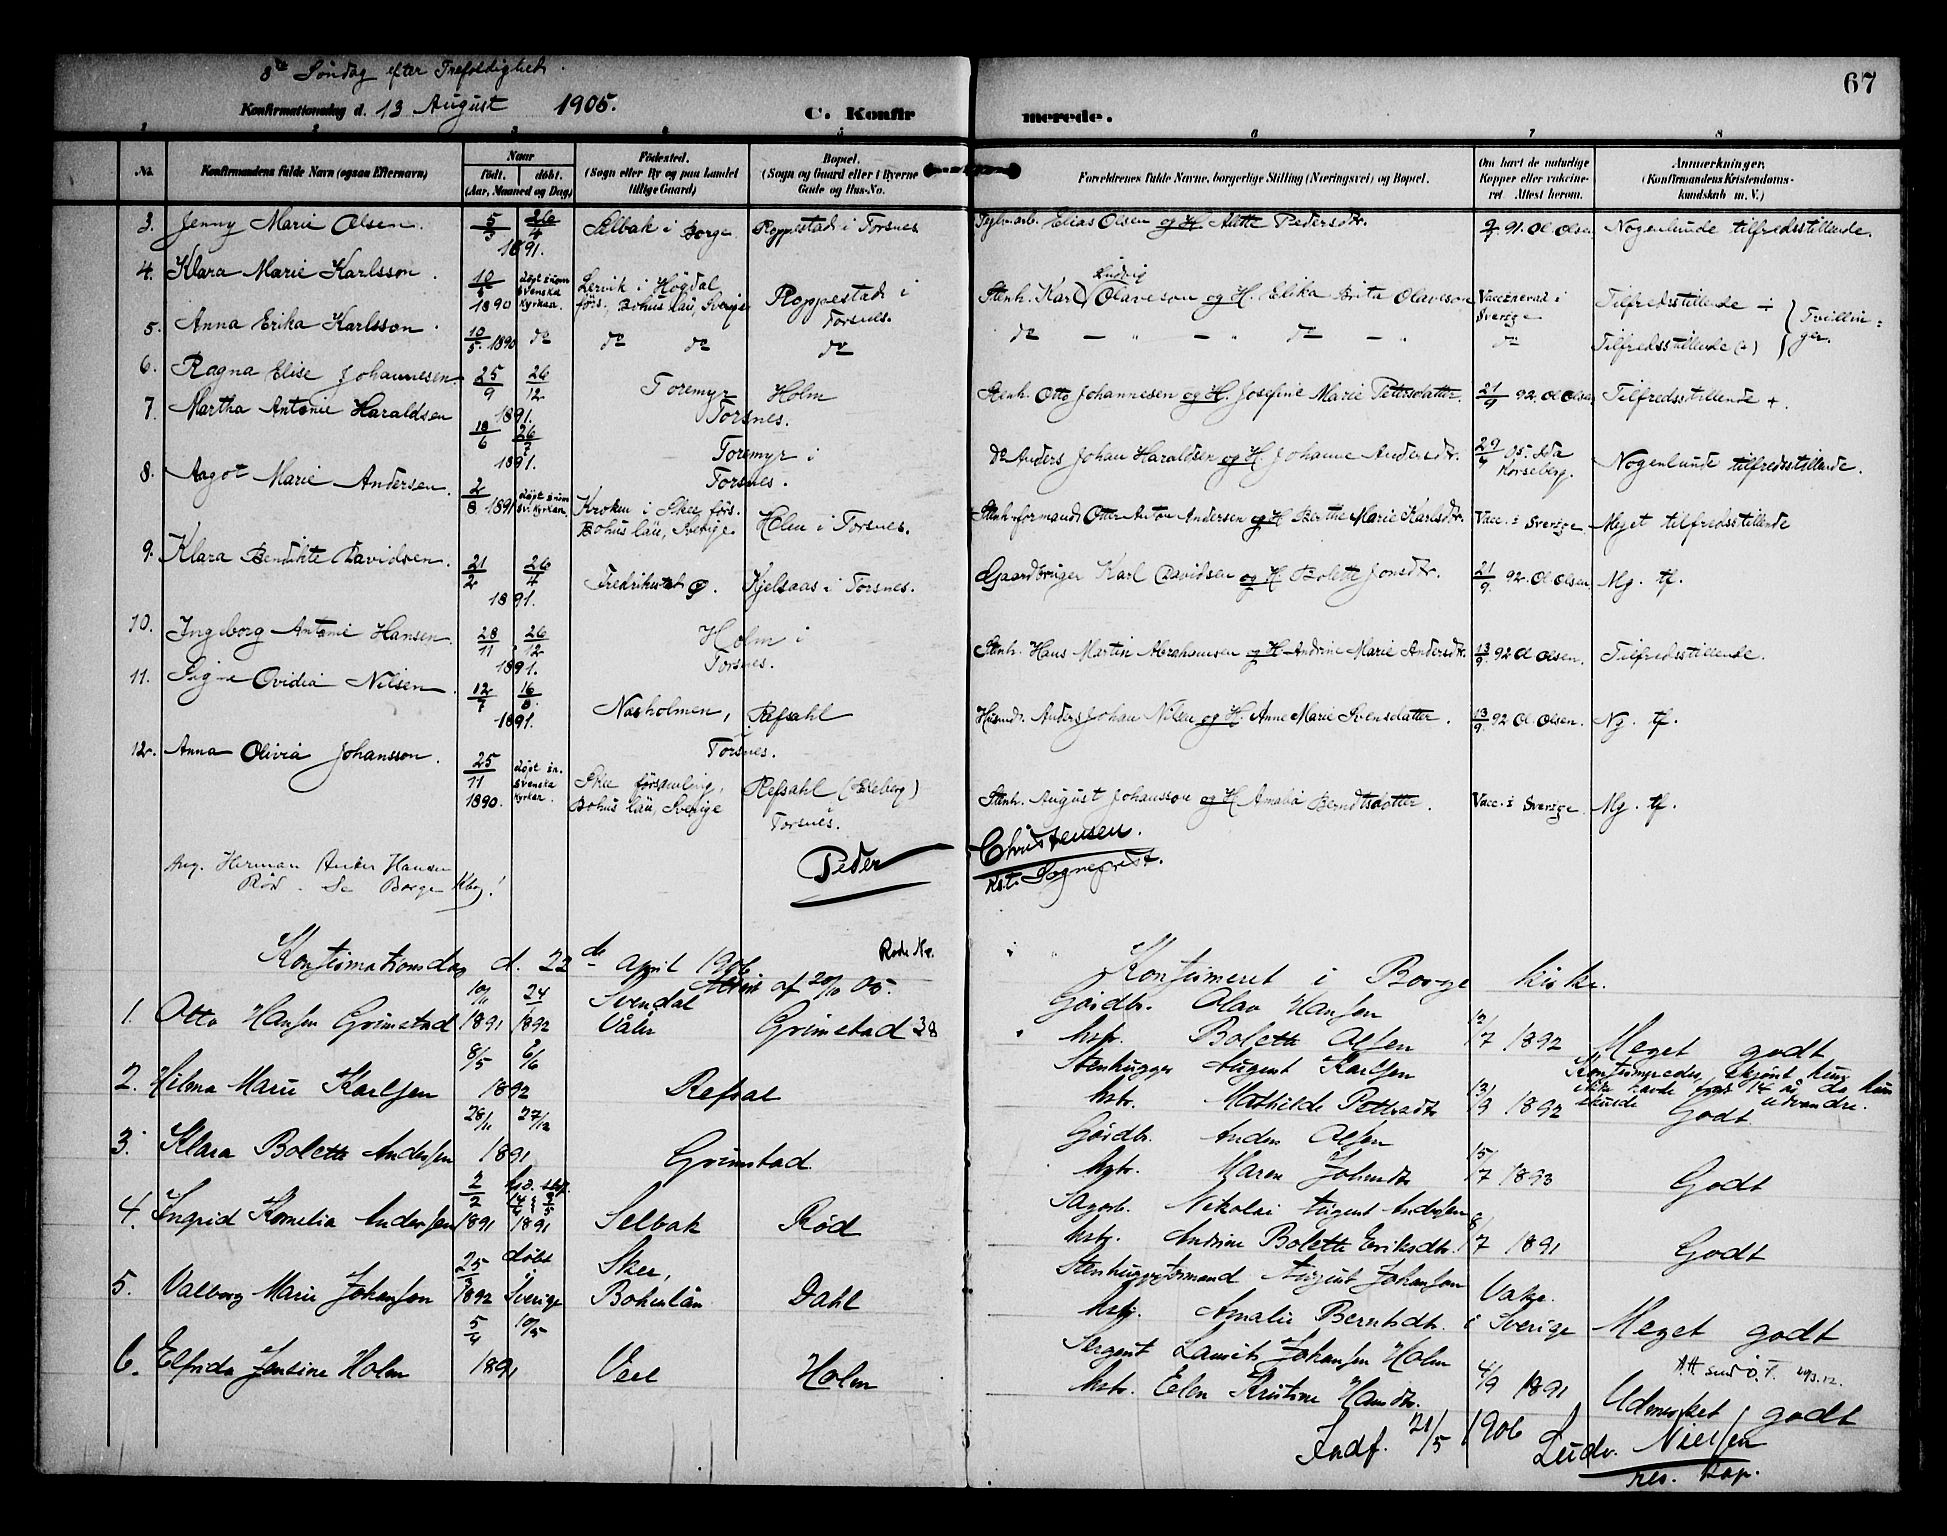 8de Søndag efter Trefoldighed.
Konfirmationsdag d. 13 August 1905.
C. Konfirmerede.
67
1 2 3 4 5 6 7 8
No.
Konfirmandens fulde Navn (ogsaa Efternavn)
Naar
født. døbt.
(Aar, Maaned og Dag)
Fødested.
(Sogn eller By og paa Landet
tillige Gaard)
Bopæl.
(Sogn og Gaard eller i Byerne
Gade og Hus-No.
Forældrenes fulde Navne, borgerlige Stilling (Næringsvei) og Bopæl.
Om havt de naturlige
Kopper eller vakcine-
ret. Attest herom.
Anmærkninger.
(Konfirmandens Kristendoms-
kundskab m. V.)
3. Jenny Marie Olsen. 5/3 26/4 1891. Selbak i Borge Roppestad i Torsnes Elias Olsen og H. Alette Pedersdtr. 91. Ol Olsen Nogenlunde tilfredsstillende.
4. Klara Marie Karlsson. 10/5 1890 døpt inom svenska kyrkan. Lervik i Högdal förs., Bohus län, Sverige Roppestad i Torsnes. Stenh. Karl Ludvig Olaveson og H. Erika Brita Olaveson Vaccinerad i Sverige Tilfredsstillende ÷
5. Anna Erika Karlsson. 10/5 1890 do do do do do — „ — „ do — „ do Tilfredsstillende (+) } Tvillinger.
6. Ragna Elise Johannesen 25/9 26/12 1891. Toremyr Holm Torsnes. Stenh. Otto Johannesen og H. Josefine Marie Petersdatter. 21/9 92. Ol Olsen Tilfredsstillende +.
7. Martha Antonie Haraldsen 18/6 26/7 1891. Toremyr i Torsnes. do Anders Johan Haraldsen og H Johanne Andersdtr. 05. Ida Korseberg. Nogenlunde tilfredsstillende.
8. Aagot Marie Andersen. 2/8 1891 døpt inom sv. kyrkan. Kroken i Skee förs. Bohus län, Sverige. Holm i Torsnes. Stenh.formand Otto Anton Andersen og H Berthe Marie Karlsdtr. Vacc. i Sverige Meget tilfredsstillende
9. Klara Bendikte Davidsen. 21/2 26/4 1891. Fredrikstad Ø. Kjelsaas i Torsnes. Gaardbruger Karl Davidsen og H Bolette Jonsdtr. 21/9 92. Ol Olsen. Mg. tf.
10. Ingeborg Antonie Hansen. 28/11 26/12 1891. Holm i Torsnes. Stenh. Hans Martin Abrahamsen og H Andrine Marie Andersdtr. 13/9 92 Ol Olsen. Tilfredsstillende.
11. Signe Ovidia Nilsen. 12/7 16/8. 1891. Næsholmen, Refsahl i Torsnes. Husmd. Anders Johan Nilsen og H. Anne Marie Svensdatter. 13/9 92 Ol. Olsen. Ng. tf.
12. Anna Olivia Johansson. 25/11 1890. døpt in. svenska kyrkan. Skee församling, Bohus län, Sverige Refsahl (Ekeberg) i Torsnes. Stenh. August Johansson og H Amalia Berndtsdotter. Vacc. i Sverige Mg. tf.
Ang. Herman Anker Hansen
Rød. Se Borge Kbog!
Peder Christensen.
kst. Sogneprest.
Konfirmationsdag d. 22de April 1906 Konfirmeret i Borge kirke.
af 20/10 05.
1. Otto Hansen Grimstad 10/11 1891 24/ 1892 Svendal Våler Grimstad 38 Gårdbr. Olav Hansen hstr. Bolette Olsen 12/7 1892 Meget godt
2. Hilma Marie Karlsen 8/5 6/6 1892 Refsal Stenhugger August Karlsen hstr. Mathilde Pettersdtr 13/9 1892 Konfirmeredes, skjønt hun ikke havde fyldt 14 år, da hun skulde udvandre. Godt.
3. Klara Bolette Andersen 28/11 27/12 1891 Grimstad Gårdbr. Anders Olsen hstr. Maren Johnsdtr 15/7 1893 Godt
4. Ingrid Kornelia Andersen 2/2 1891 1891 Selbak Rød Sagarb. Nikolai August Andersen hstr. Andrine Bolette Eriksdtr. 8/7 1891 Godt
5. Valborg Marie Johansen 25/3 1892 døbt i Sverige Skee, Bohuslän Dahl Stenhuggerformand August Johansen hstr. Amalie Berntsdtr. Vakc. i Sverige Meget godt
6. Elfrida Jensine Holm 5/4 10/5 1891 Veel Holm Sergeant Laurits Johansen Holm hstr. Elen Kristine Hansdtr. 4/9 1891 Udmerket godt
Indf. 21/5 1906 Ludv. Nielsen
res. kap.